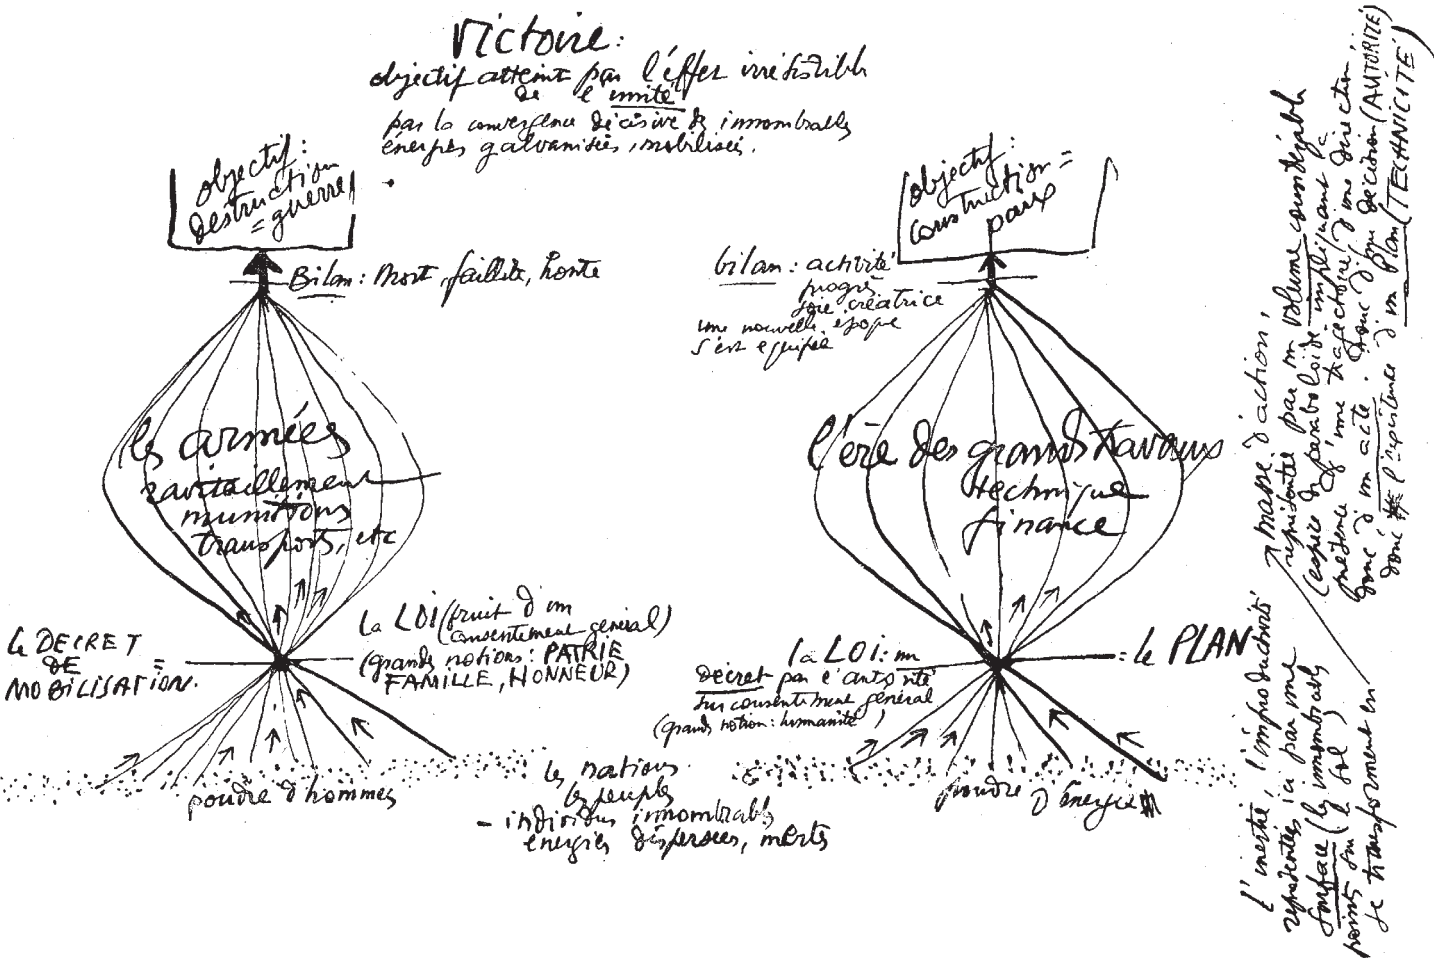 Victoire:
objectif atteint par l'effet irrésistible
de l'unité
par la convergence décisive de innombrables
énergies galvanisées, mobilisées.
objectif:
destruction
= guerre
Bilan: Mort, faillite, honte
les armées
ravitaillement
munitions
transports, etc
le DECRET
DE
MOBILISATION.
=
la LOI (fruit d'un
consentement général)
(grandes notions: PATRIE
FAMILLE, HONNEUR)
poudre d'hommes
les nations
les peuples
- individus innombrables
énergies dispersées, inertes
objectif:
construction =
paix
bilan: activité
progrès
joie créatrice
une nouvelle époque
s'est équipée
l'ère des grands travaux
technique
finance
la LOI: un
décret par l'autorité
sur consentement général
(grande notion: humanité)
= le PLAN
poudre d'énergie
L'inertie, l'improductivité
représentées ici par une
surface (les innombrables
points sur le sol)
se transforment en
masse d'action,
représentée par un volume considérable
(espèce de paraboloïde impliquant la
présence d'une trajectoire, d'une direction:
donc d'un acte. donc d'une décision (AUTORITÉ)
donc l'existence d'un Plan (TECHNICITÉ)